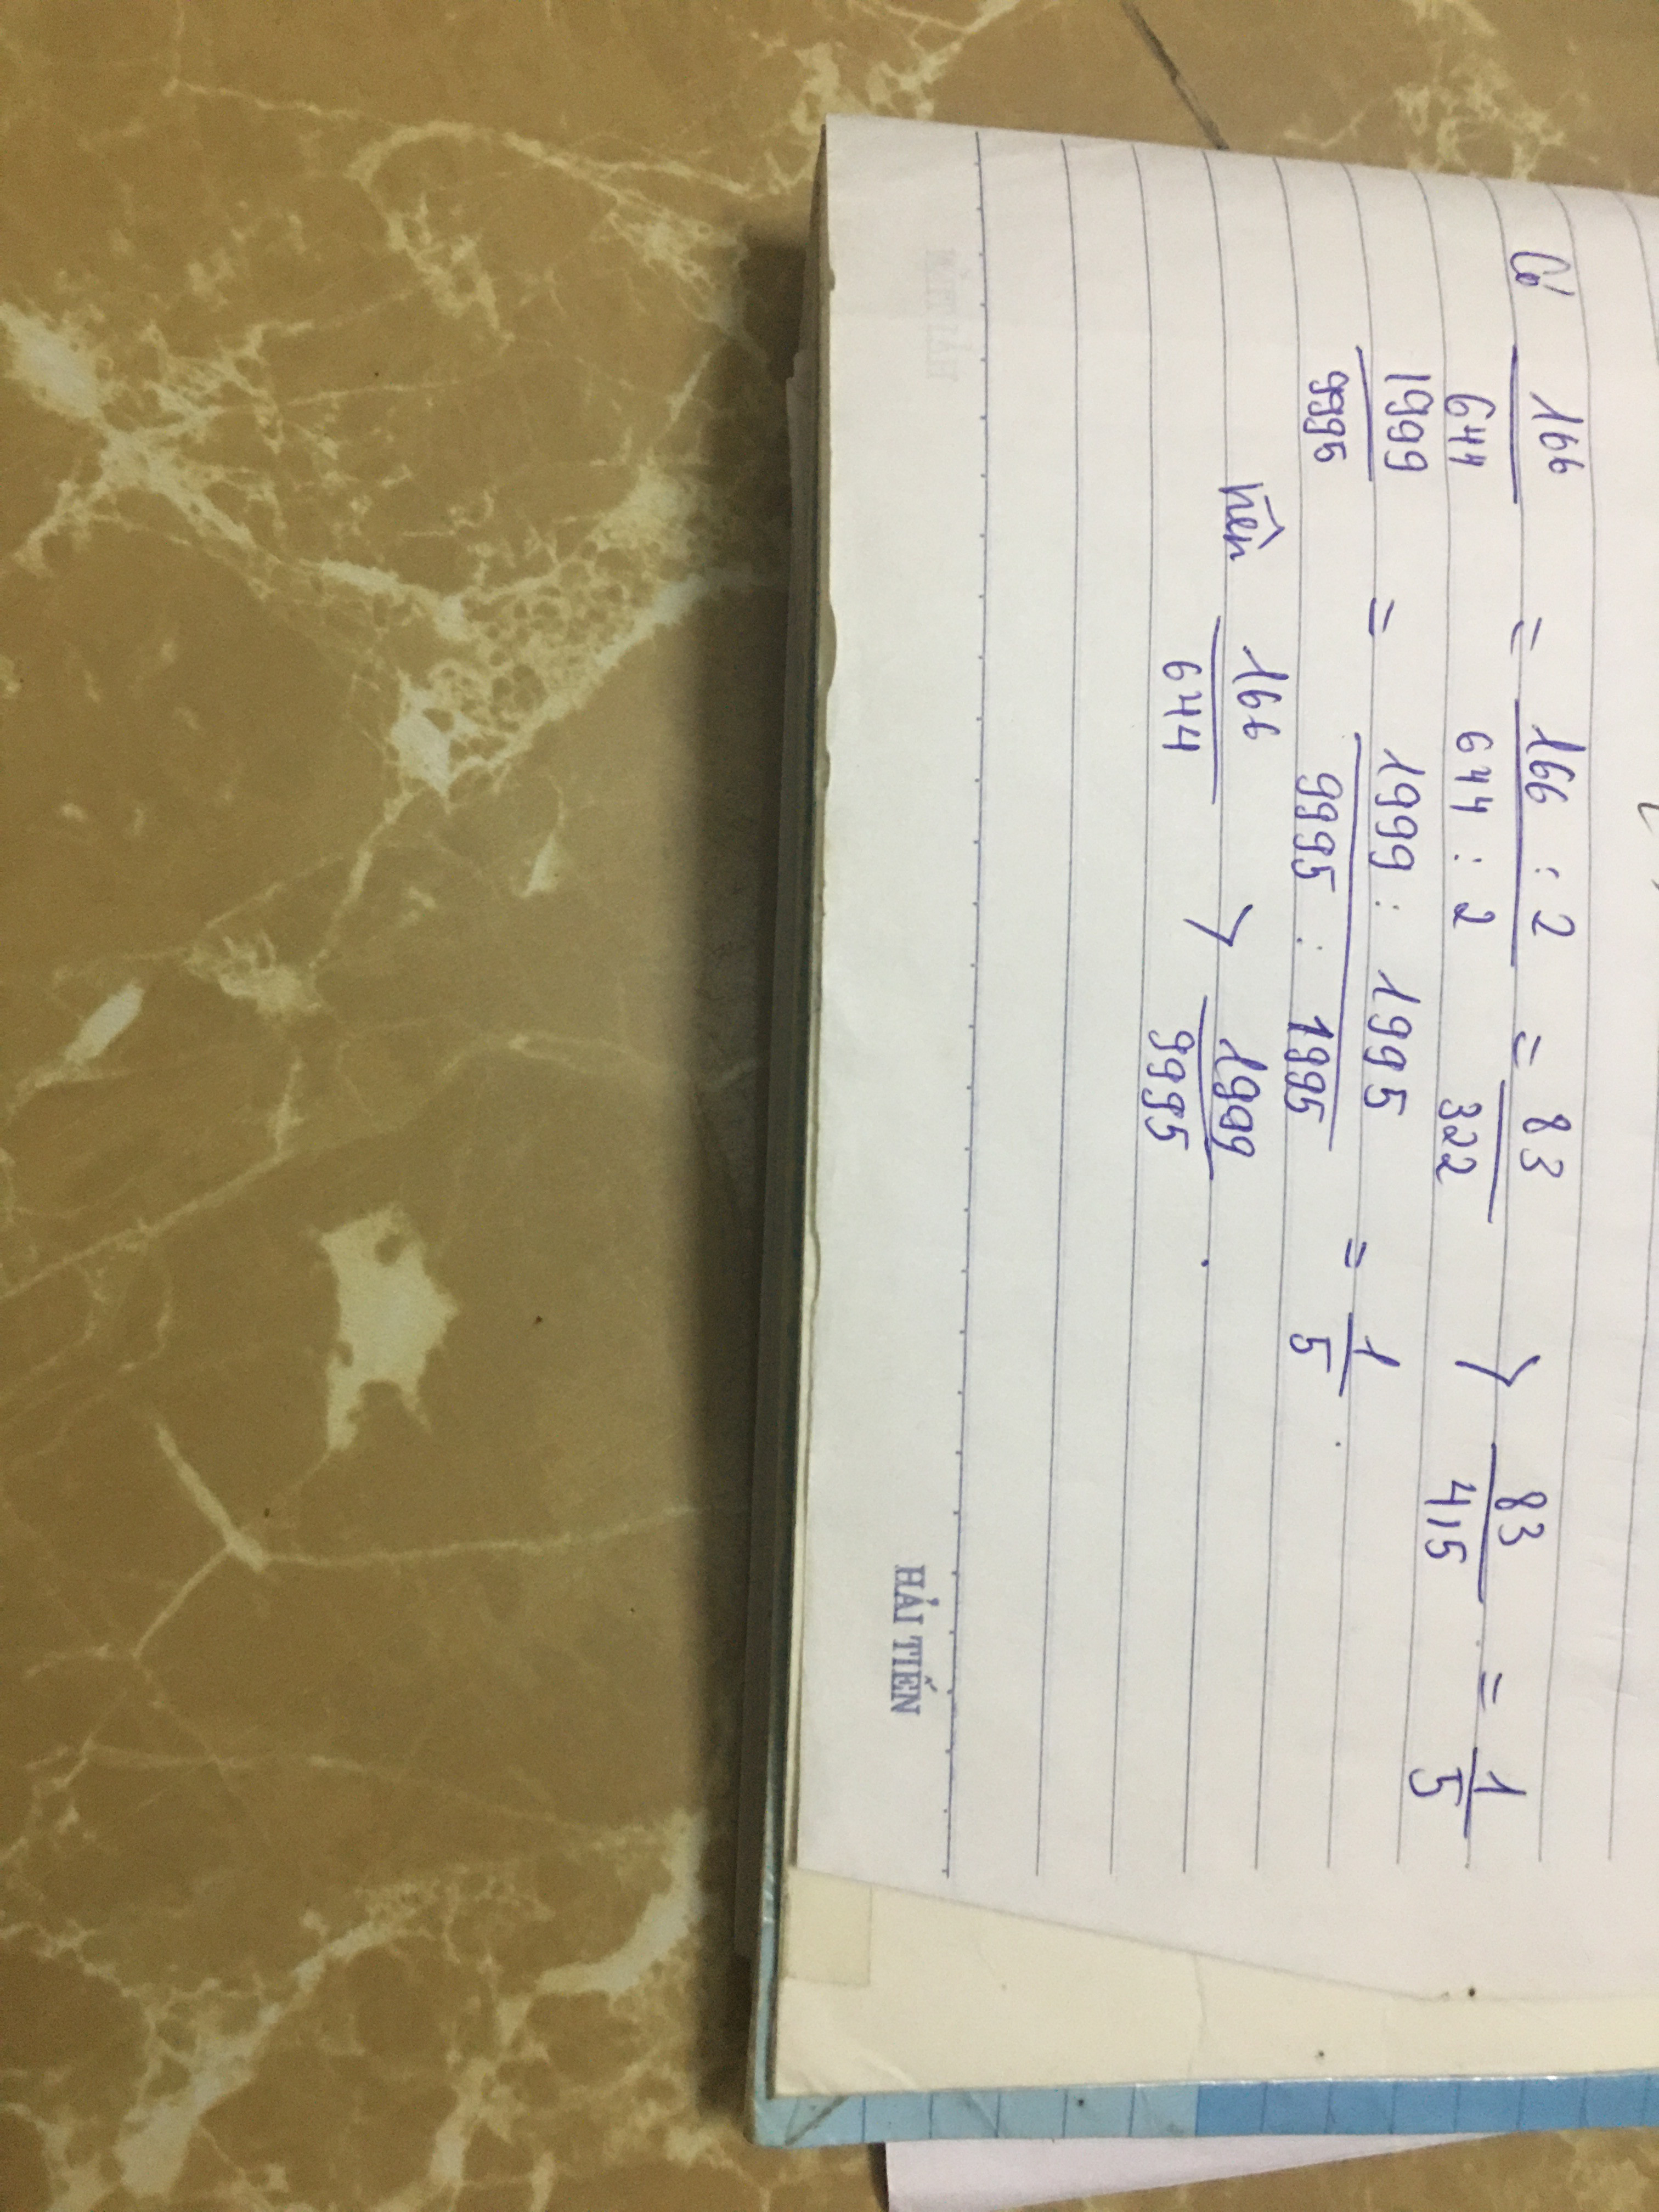 Có 166/644 = 166 : 2/644 : 2 = 83/322 > 83/415 = 1/5
1999/9995 = 1999 : 1995/9995 : 1995 = 1/5 .
Nên 166/644 > 1999/9995 .
HẢI TIẾN